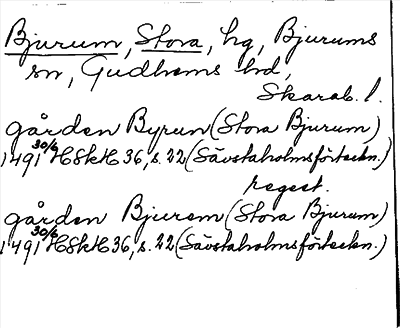 Bjurum, Stora, hg, Bjurums
sn, Gudhems hd,
Skarab. l.
gården Byrun (Stora Bjurum)
1491 30/6 HSkH 36, s. 22 (Sävstaholmsförteckn.)
regest.
gården Bjurem (Stora Bjurum)
1491 30/6 HSkH 36, s. 22 (Sävstaholmsförteckn.)